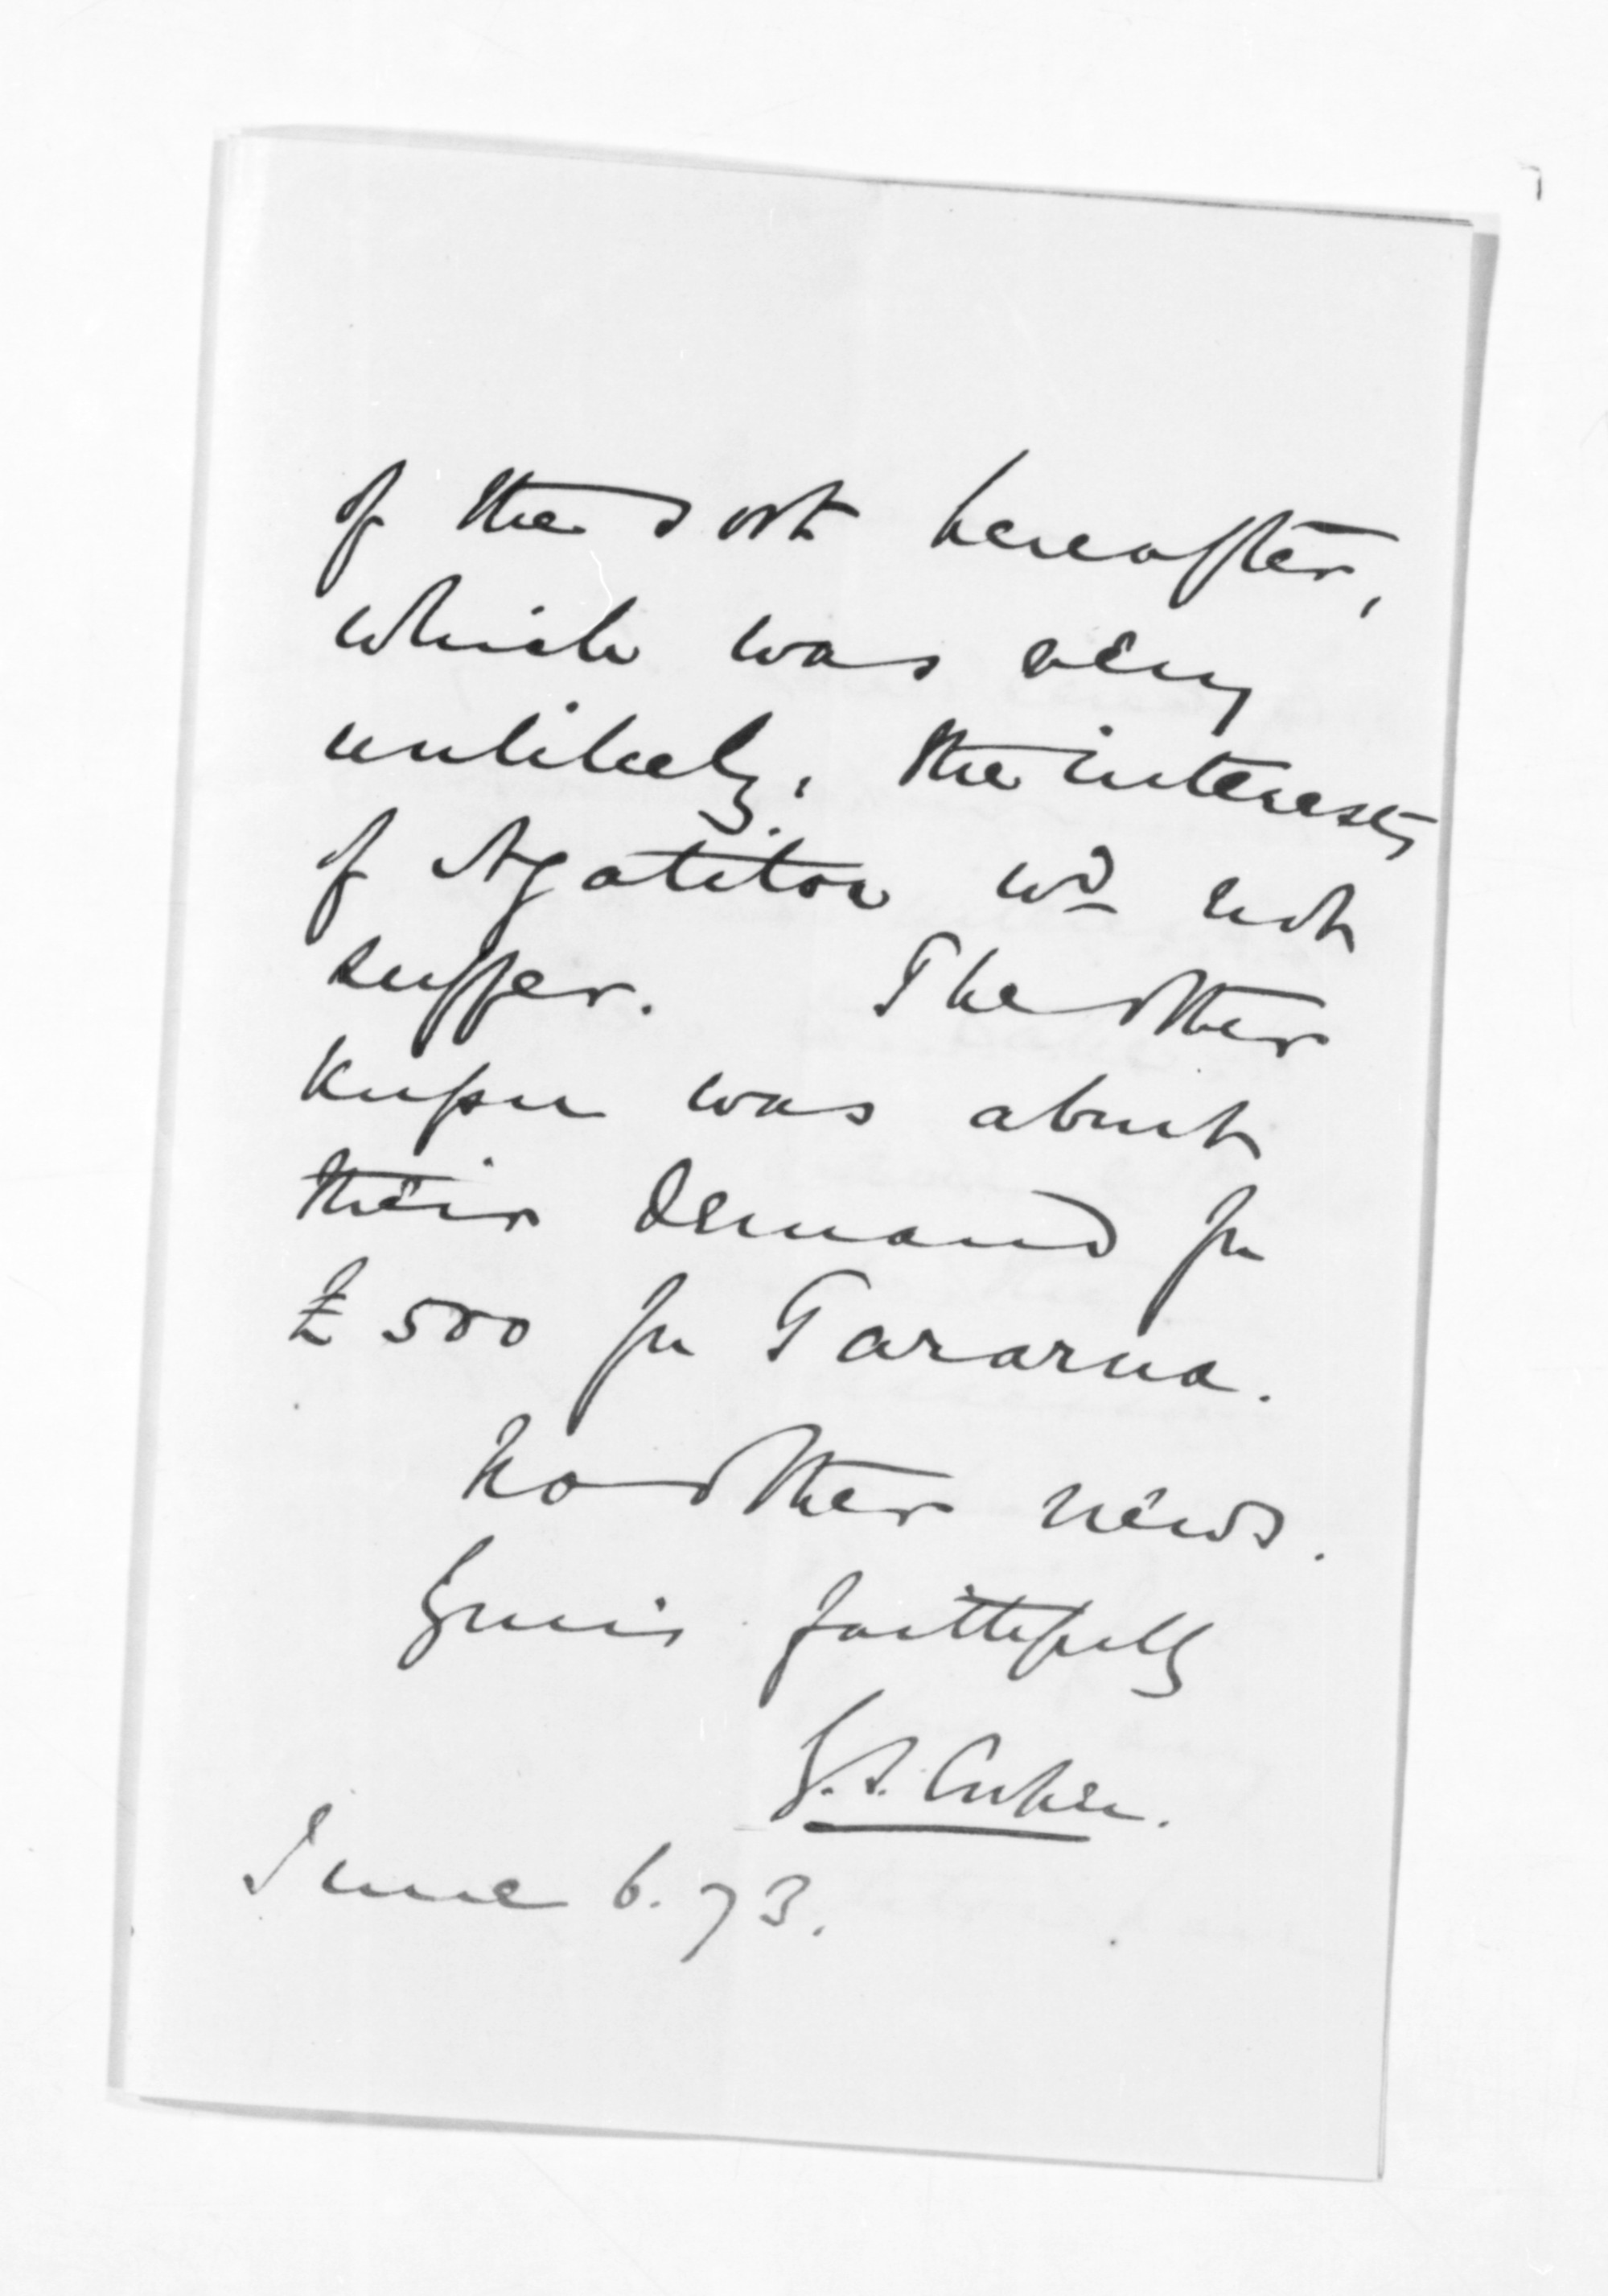 of the sort hereafter,
which was very
unlikely, the interests
of Ngatitoa wd not
suffer. The other
kupu was about
their demand for
£500 for Tararua.
No other news.
Yours faithfully
G. S. Cooper.
June 6. 73.